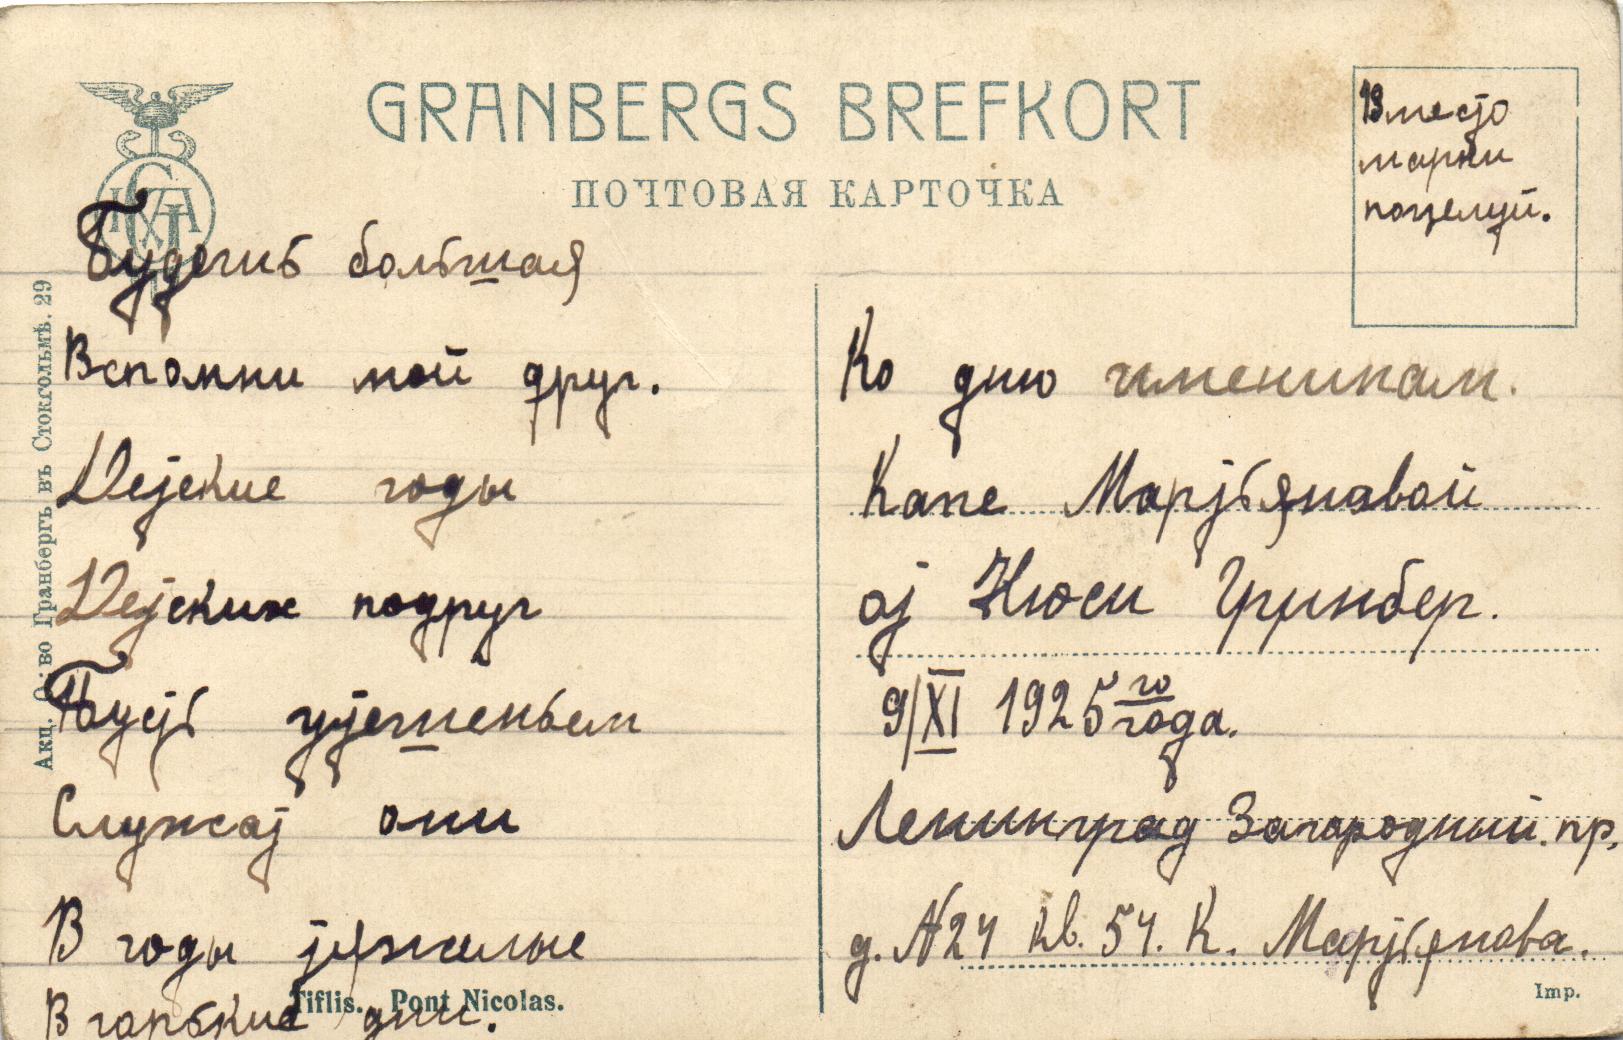 GRANBERGS BREFKORT
ПОЧТОВАЯ КАРТОЧКА
Вместо
марки
поцелуй.
Будешь большая
Вспомни мой друг.
Детские годы
Детских подруг
Пусть утешеньем
Служат они
В годы тяжелые
В горькие дни.
Ко дню именинам.
Капе Мартьяновой
от Нюси Гринбер.
9/XI 1925 го года.
Ленинград Загородный. пр.
д. №24 кв. 54. К. Мартьянова.
Tiflis. Pont Nicolas.
Imp.
Акц. О-во Гранбергъ въ Стокгольмѣ. 29